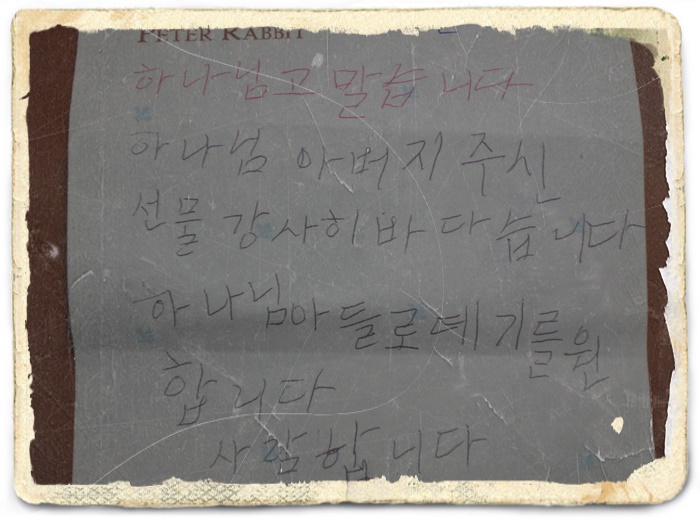 PETER RABBIT
하나님고 말습니다
하나님 아버지 주신
선물 강사히 바다습니다
하나님아들로데기를원
합니다
사람합니다